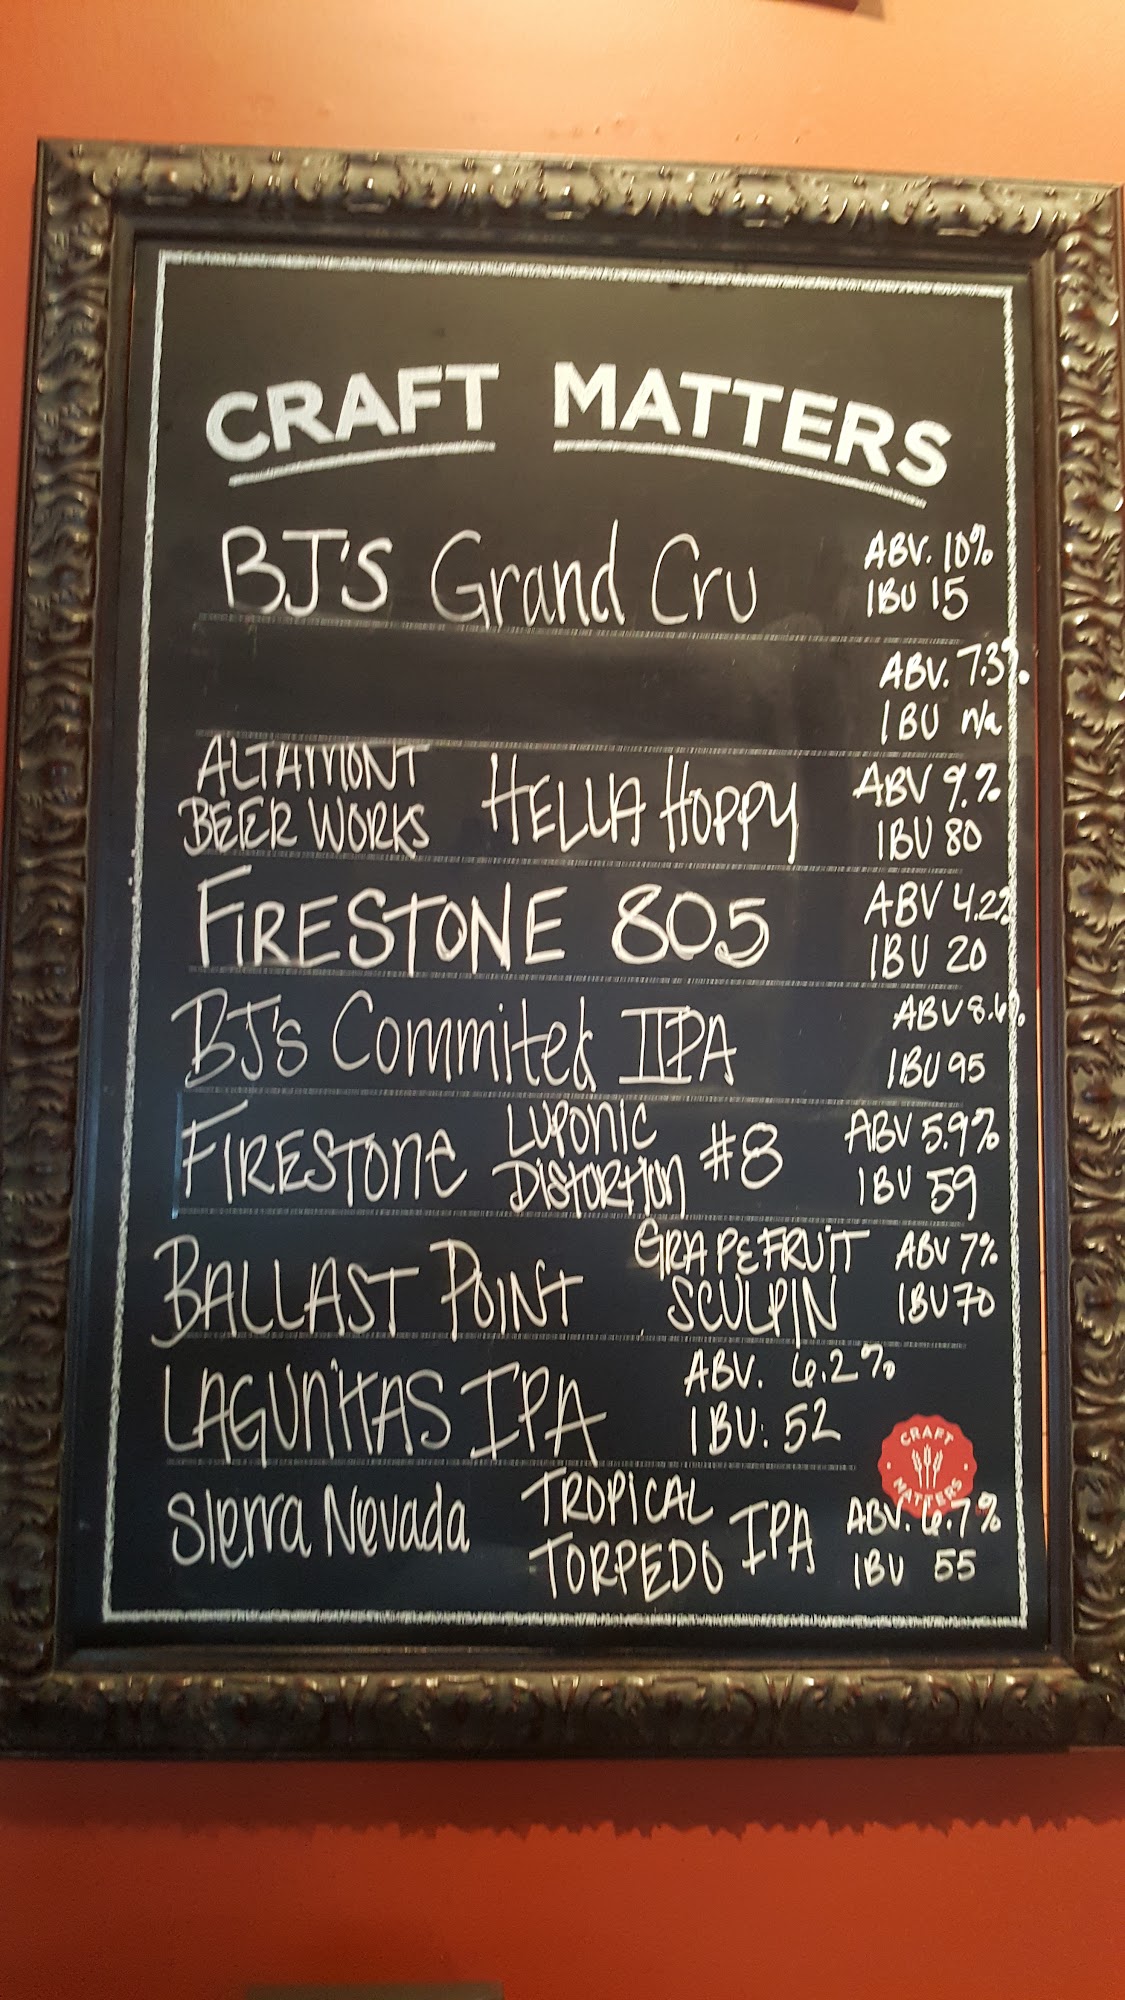 CRAFT MATTERS
BJ'S Grand Cru ABV. 10%
IBU 15
ABV. 7.3%
IBU n/a
ALTAMONT
BEER WORKS HELLA HOPPY ABV 9.%
IBU 80
FIRESTONE 805 ABV 4.2%
IBU 20
BJ's Commited IIPA ABV 8.6%
IBU 95
FIRESTONE LUPONIC
DISTORTION #8 ABV 5.9%
IBU 59
BALLAST POINT GRAPEFRUIT
SCULPIN ABV 7%
IBU 70
LAGUNITAS IPA ABV. 6.2%
IBU: 52
CRAFT
MATTERS
Sierra Nevada TROPICAL
TORPEDO IPA ABV. 6.7%
IBU 55